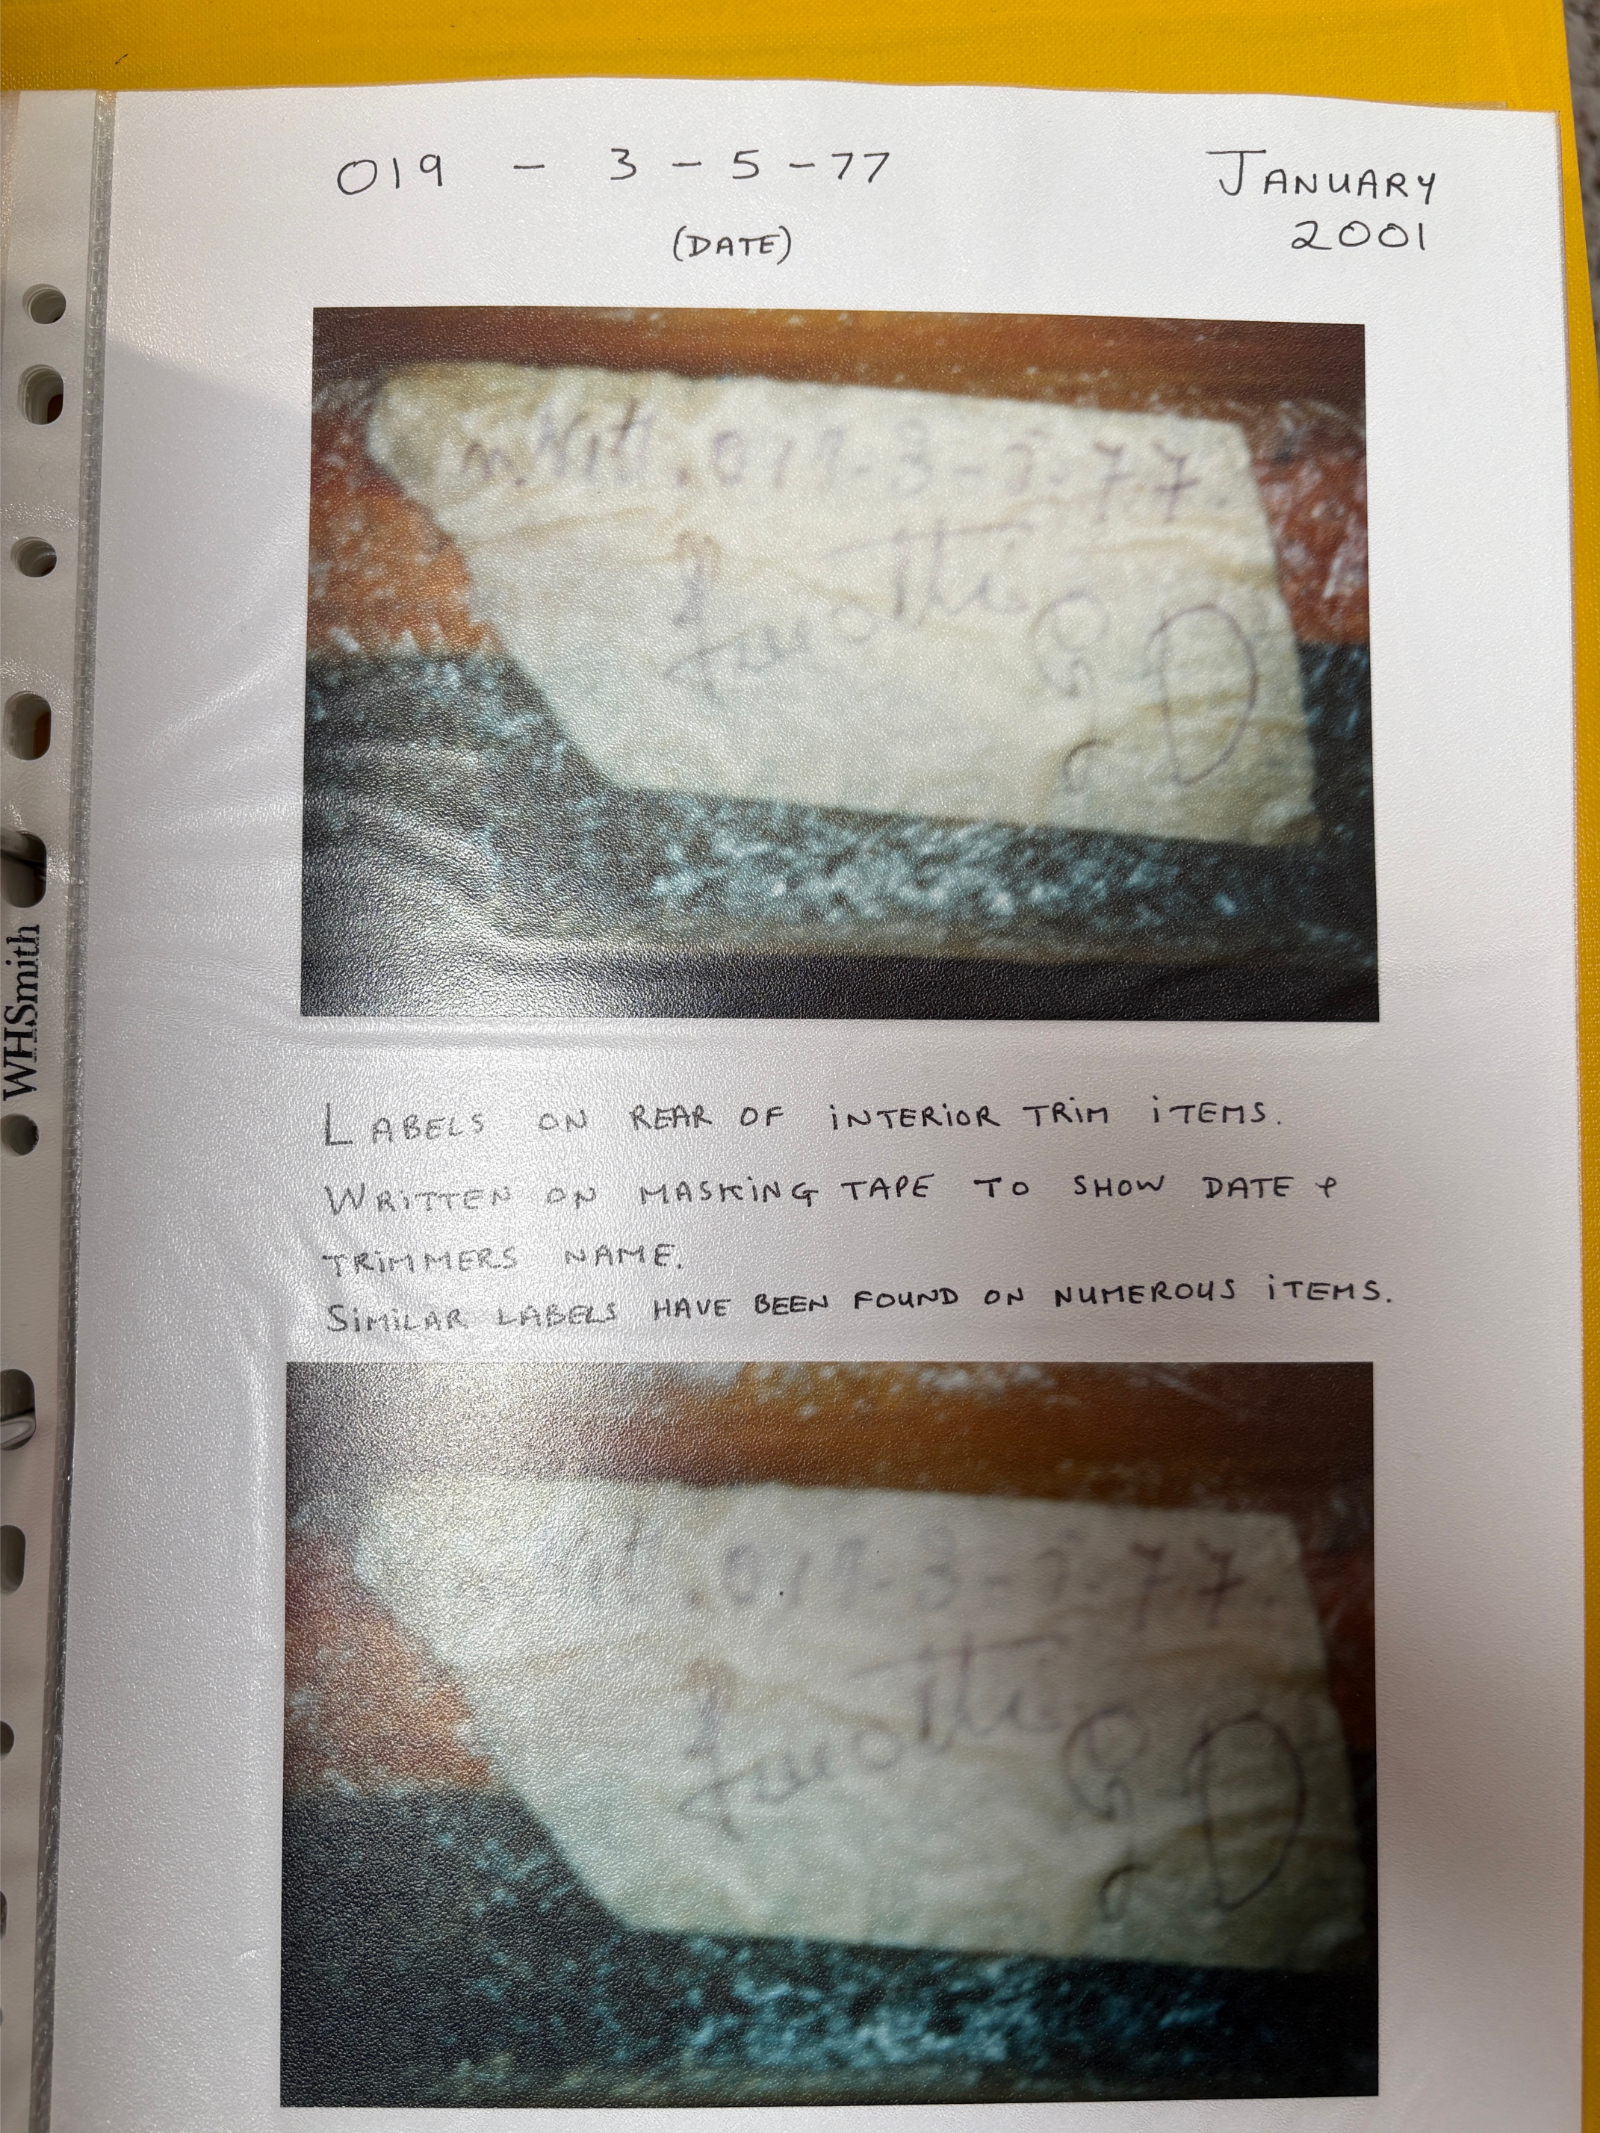 019 - 3 - 5 - 77
(DATE)
JANUARY
2001
019-3-5-77
LABELS ON REAR OF INTERIOR TRIM ITEMS.
WRITTEN ON MASKING TAPE TO SHOW DATE &
TRIMMERS NAME.
SIMILAR LABELS HAVE BEEN FOUND ON NUMEROUS ITEMS.
019-3-5-77
WHSmith